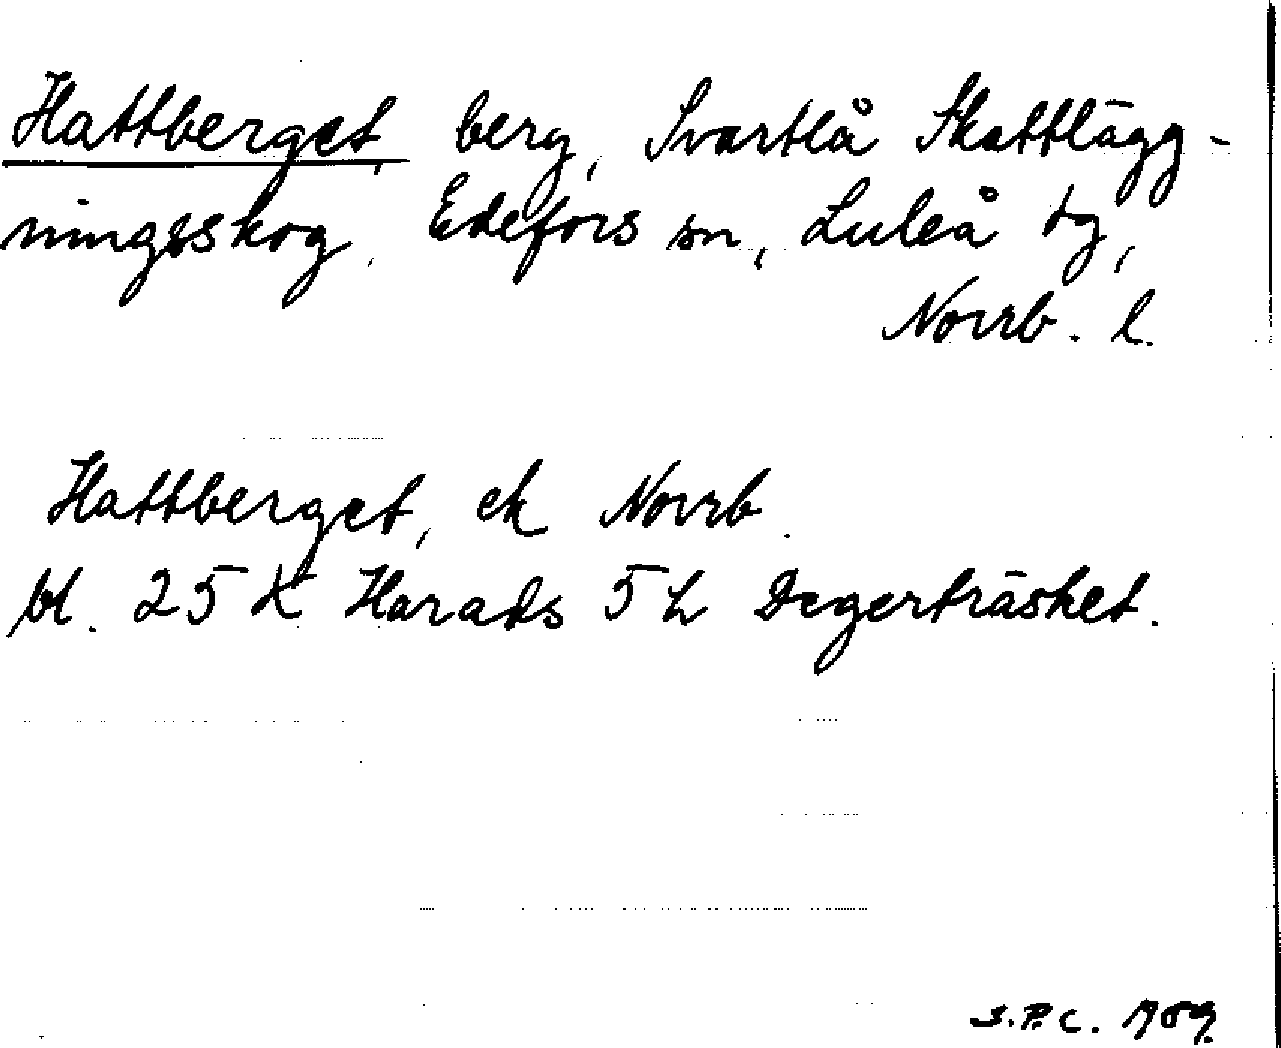 Hattberget, berg, Svartlå Skattlägg-
ningsskog, Edefors sn, Luleå tg,
Norrb. l.
Hattberget, ek Norrb.
bl. 25 K Harads 5 h Degerträsket.
S.P.C. 1959.